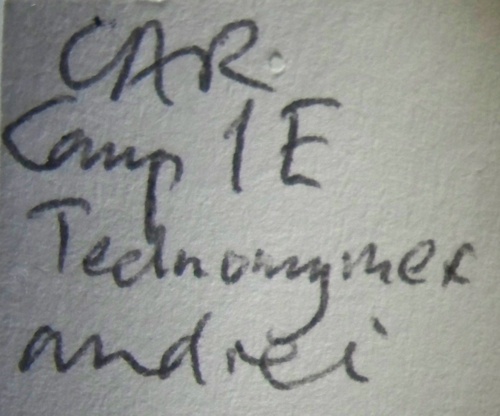 CAR
Camp 1E
Technomymex
andrei